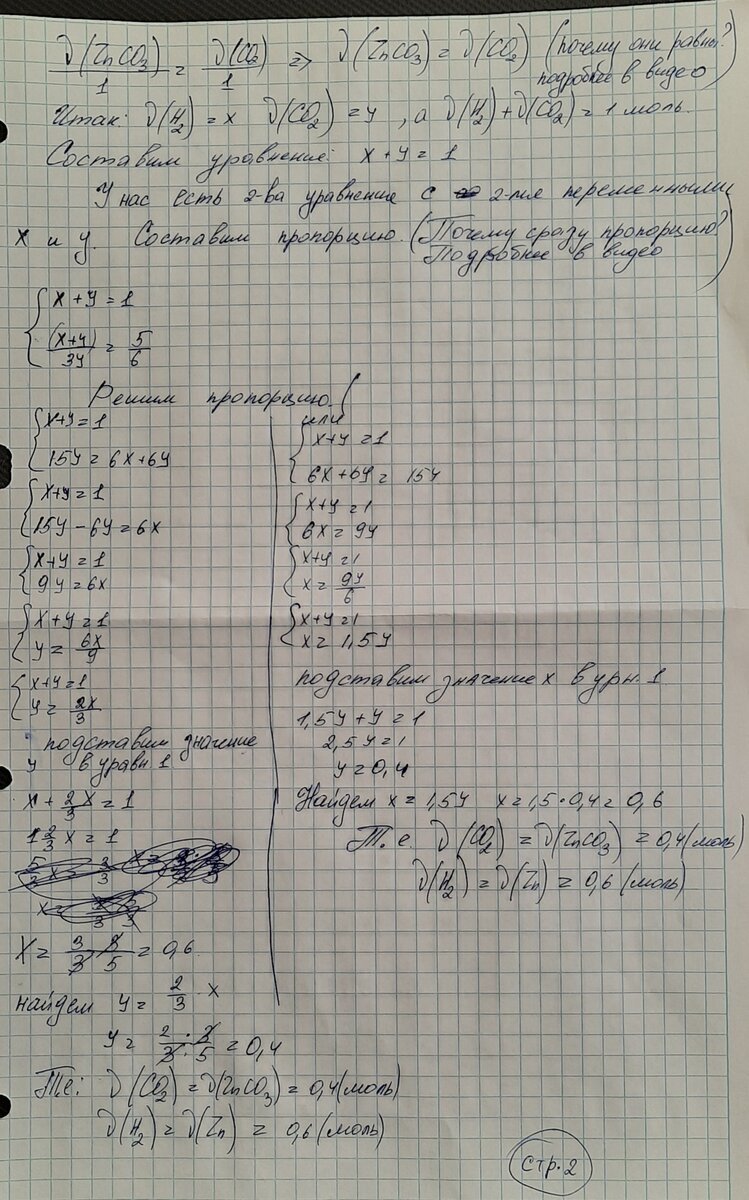 ν(ZnCO₃)/1 = ν(CO₂)/1 => ν(ZnCO₃) = ν(CO₂) (почему они равны?
подробнее в видео)
Итак: ν(H₂) = x ν(CO₂) = y, а ν(H₂) + ν(CO₂) = 1 моль.
Составим уравнение: x + y = 1
У нас есть 2-ва уравнение с 2-мя переменными
x и y. Составим пропорцию. (Почему сразу пропорцию?
Подробнее в видео)
{ x + y = 1
(x+y)/3y = 5/6
Решим пропорцию (
{ x+y = 1
15y = 6x+6y
{ x+y = 1
15y - 6y = 6x
{ x+y = 1
9y = 6x
{ x+y = 1
y = 6x/9
{ x+y = 1
y = 2x/3
подставим значение
y в уравн 1
x + 2/3 x = 1
1 2/3 x = 1
x = 3/3 · 3/5 = 0,6
найдем y = 2/3 · x
y = 2 · 3/3 · 5 = 0,4
Т.е: ν(CO₂) = ν(ZnCO₃) = 0,4 (моль)
ν(H₂) = ν(Zn) = 0,6 (моль)
или
{ x+y = 1
6x+6y = 15y
{ x+y = 1
6x = 9y
{ x+y = 1
x = 9y/6
{ x+y = 1
x = 1,5y
подставим значение x в урн. 1
1,5y + y = 1
2,5y = 1
y = 0,4
Найдем x = 1,5y x = 1,5 · 0,4 = 0,6
Т.е. ν(CO₂) = ν(ZnCO₃) = 0,4 (моль)
ν(H₂) = ν(Zn) = 0,6 (моль)
стр. 2